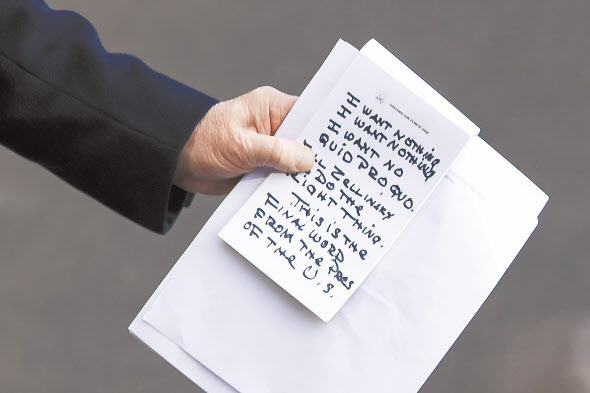 ABOARD AIR FORCE ONE
I WANT NOTHING
I WANT NOTHING.
I WANT NO
QUID PRO QUO.
ZELLINSKY
DO THE
RIGHT THING.
THIS IS THE
FINAL WORD
FROM THE PRES
OF THE U.S.